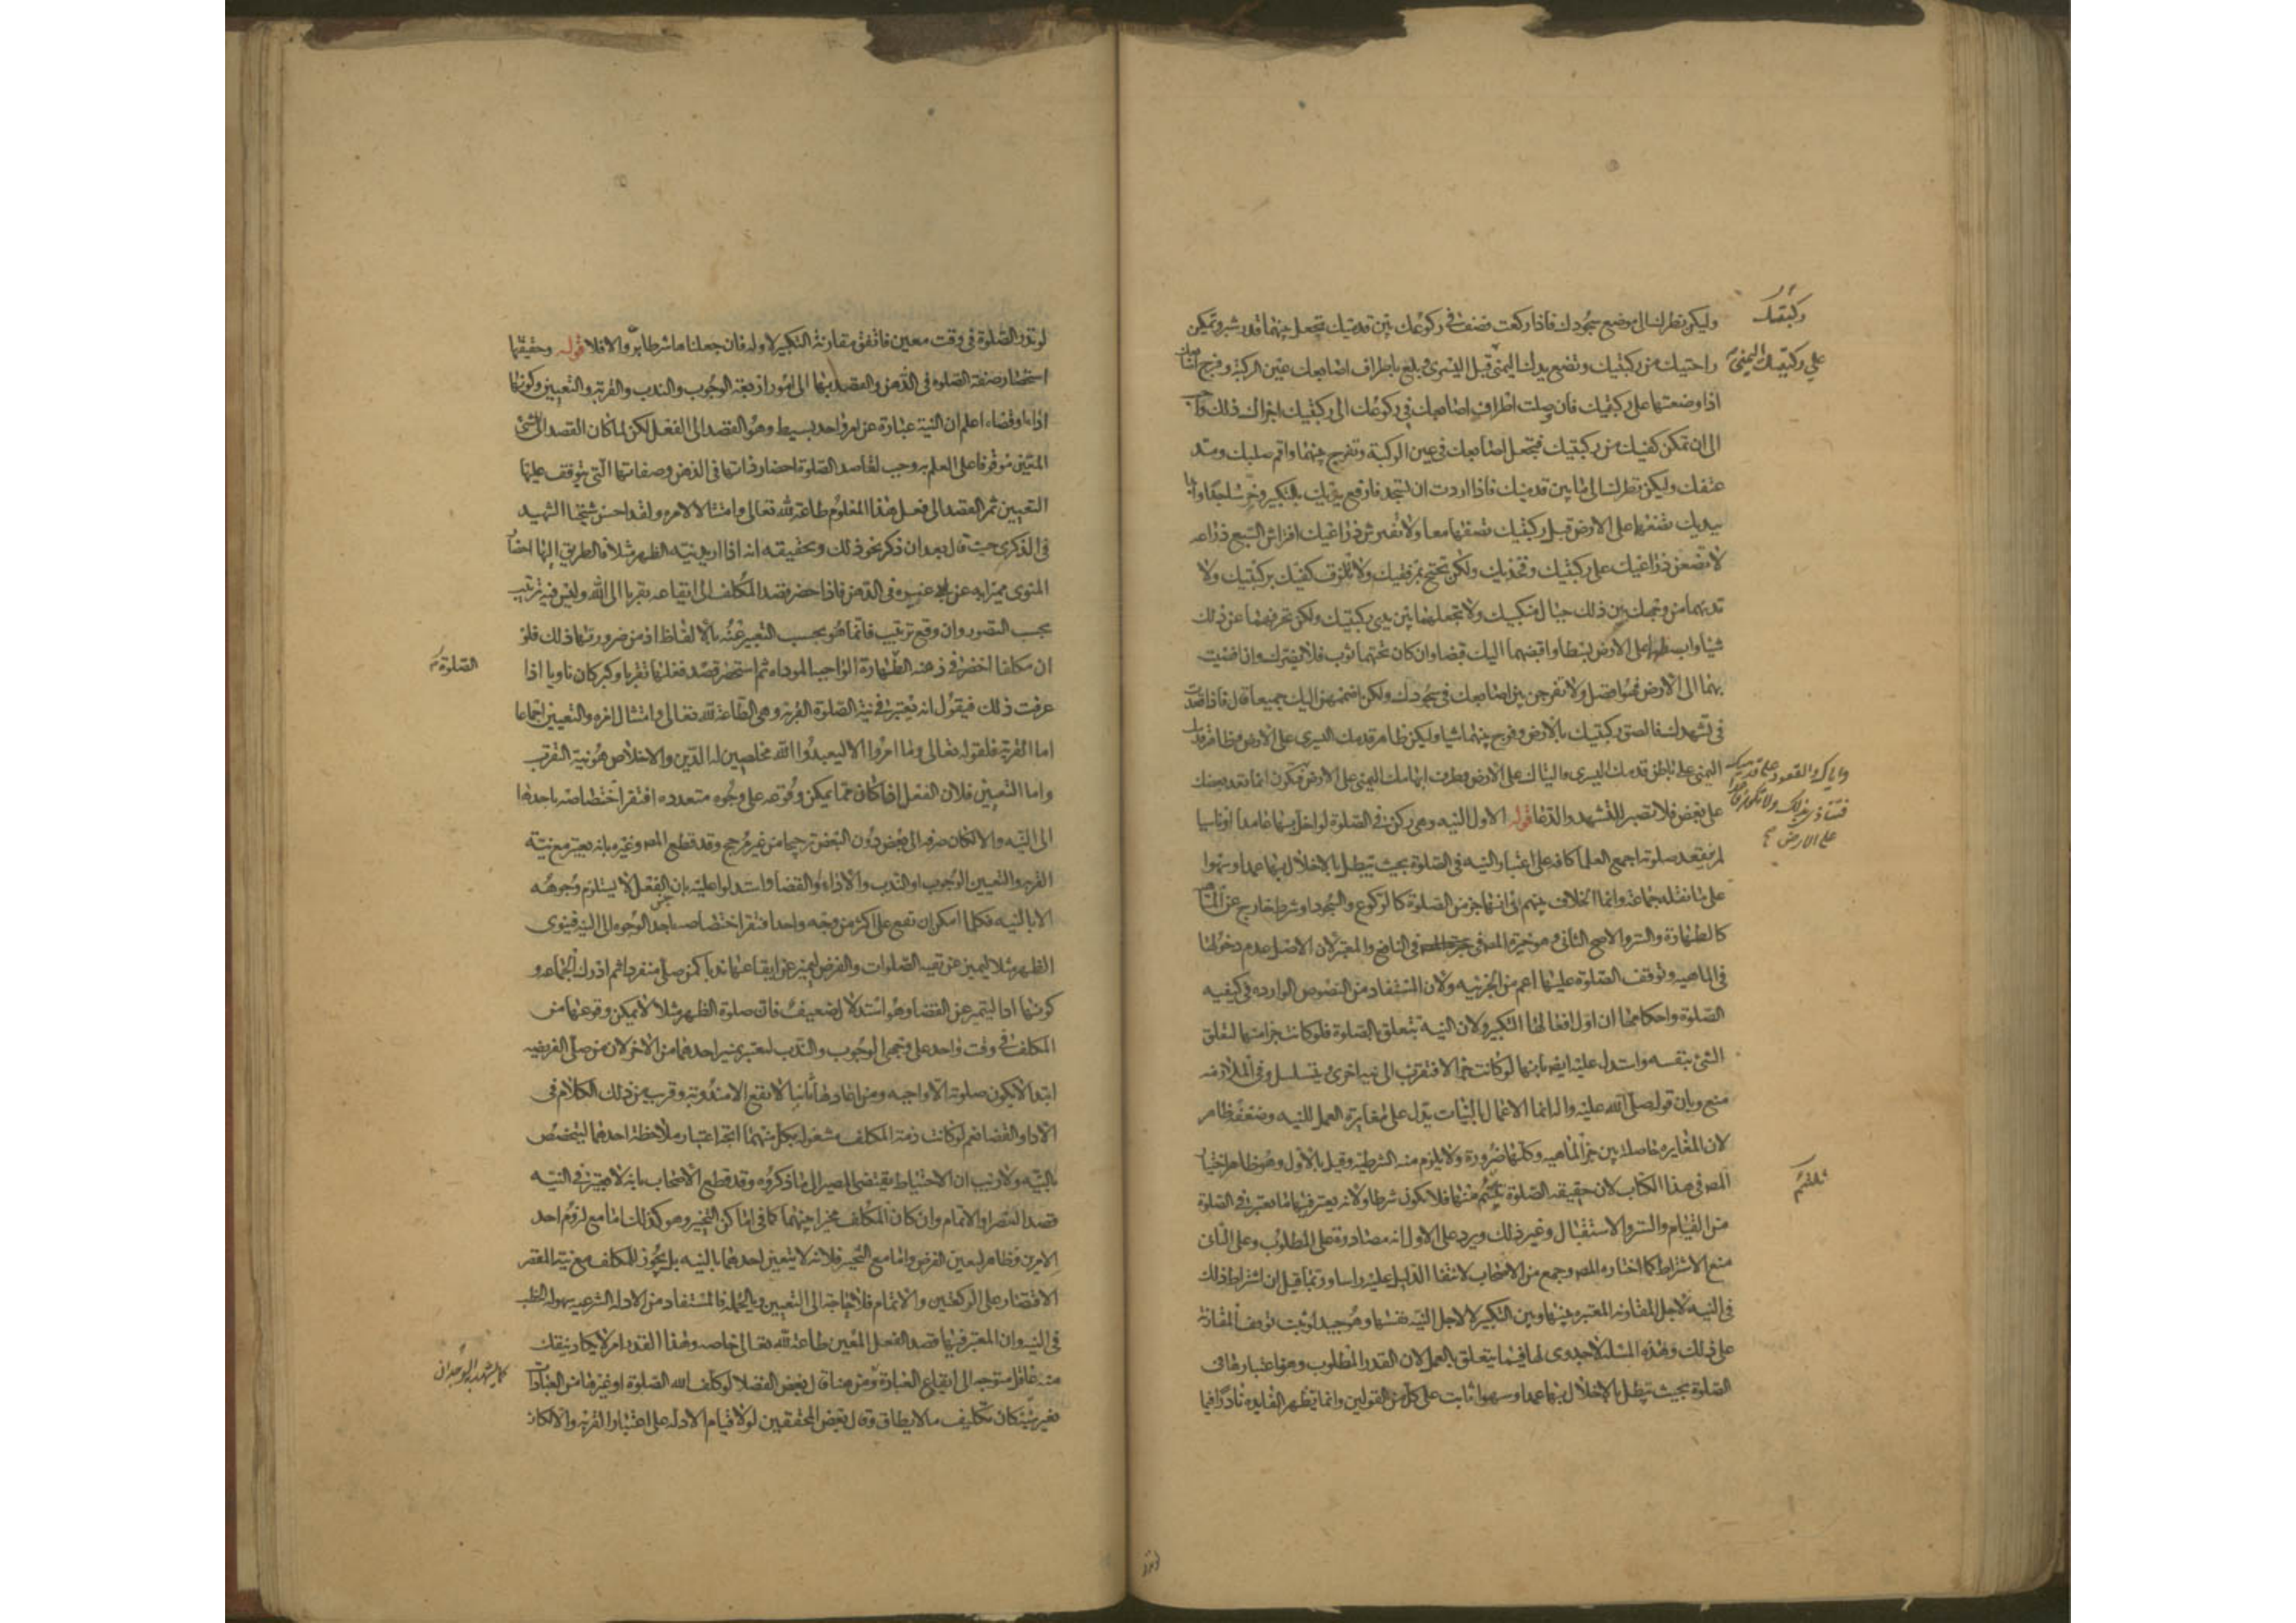 وليكن نظرك الى موضع سجودك فاذا ركعت فصف في ركوعك بين قدميك تجعل بينهما قدر شبر وتمكن
ركبتك
راحتيك من ركبتيك وتضع يدك اليمنى قبل اليسرى وبلغ باطراف اصابعك عين الركبة وفرج اصابعك
على ركبتك اليمنى
اذا وضعتها على ركبتيك فان وصلت اطراف اصابعك في ركوعك الى ركبتيك اجزاك ذلك واحب
الى ان تمكن كفيك من ركبتيك فتجعل اصابعك في عين الركبة وتفرج بينهما واقم صلبك ومد
عنقك وليكن نظرك الى ما بين قدميك فاذا اردت ان تسجد فارفع يديك بالتكبير وخر ساجدا وابدا
بيديك تضعهما على الارض قبل ركبتيك تضعهما معا ولا تفترش ذراعيك افتراش السبع ذراعه
لا تضعن ذراعيك على ركبتيك وفخذيك ولكن تجنح بمرفقيك ولا تلزق كفيك بركبتيك ولا
تدنهما من وجهك بين ذلك حيال منكبيك ولا تجعلهما بين يدي ركبتيك ولكن تحرفهما عن ذلك
شيا وابسطهما على الارض بسطا واقبضهما اليك قبضا وان كان تحتهما ثوب فلا يضرك وان افضيت
بهما الى الارض فهو افضل ولا تفرجن بين اصابعك في سجودك ولكن اضممهن اليك جميعا قال فاذا قعدت
في تشهدك فالصق ركبتيك بالارض وفرج بينهما شيا وليكن ظاهر قدمك اليسرى على الارض وظاهر قدمك
اليمنى على باطن قدمك اليسرى والياك على الارض وطرف ابهامك اليمنى على الارض فتكون انما قعد بعضك
واياك والقعود على قدميك
فتتاذى بذلك ولا تكون قاعدا
على الارض
على بعض فلا تصبر للتشهد والدعا قوله الاول النيه وهي ركن في الصلوة لو اخل بها عامدا او ناسيا
لم ينعقد صلوته اجمع العلما كافه على اعتبار النيه في الصلوة بحيث تبطل بالاخلال بها عمدا وسهوا
على ما نقله جماعة وانما الخلاف بينهم في انها جز من الصلوة كالركوع والسجود او شرط خارج عن الماهية
كالطهارة والستر والاصح الثاني وهو خيرة المص في النافع والمعتبر لان الاصل عدم دخولها
في الماهيه وتوقف الصلوة عليها اعم من الجزئيه ولان المستفاد من النصوص الوارده في كيفيه
الصلوة واحكامها ان اول افعالها التكبير ولان النية تتعلق بالصلوة فلو كانت جزا منها لتعلق
الشئ بنفسه واستدل عليه ايضا بانها لو كانت جزا لافتقرت الى نيه اخرى ويتسلسل وفي الملازمة
منع وبان قوله صلى الله عليه واله انما الاعمال بالنيات يدل على مغايرة العمل للنيه وضعفه ظاهر
لان المغايره حاصلة بين جز الماهيه وكلها ضرورة ولا يلزم منه الشرطيه وقيل بالاول وهو ظاهر اختيار
المص في هذا الكتاب لان حقيقه الصلوة تلتئم منها فلا يكون شرطا ولانه يعتبر فيها ما يعتبر في الصلوة
تلتئم
من القيام والستر والاستقبال وغير ذلك ويرد على الاول انه مصادرة على المطلوب وعلى الثاني
منع الاشتراط كما اختاره المص وجمع من الاصحاب لانتفا الدليل عليه راسا وربما قيل ان اشتراط ذلك
في النيه لاجل المقارنه المعتبره بينها وبين التكبير لا لاجل النيه نفسها وهو جيد لو ثبت توقف المقارنة
على ذلك وهذه المسلة لا جدوى لها فيما يتعلق بالعمل لان القدر المطلوب وهو اعتبارها في
الصلوة بحيث تبطل بالاخلال بها عمدا وسهوا ثابت على كل من القولين وانما تظهر الفايده نادرا فيما
لو نذر الصلوة في وقت معين فاتفق مقارنة التكبير لاوله فان جعلناها شرطا بر والا فلا قوله وحقيقتها
استحضار صفة الصلوة في الذهن والقصد بها الى امور اربعة الوجوب والندب والقربة والتعيين وكونها
اداء او قضاء اعلم ان النية عبارة عن امر واحد بسيط وهو القصد الى الفعل لكن لما كان القصد الى الشئ
المعين موقوفا على العلم به وجب لقاصد الصلوة احضار ذاتها في الذهن وصفاتها التي يتوقف عليها
التعيين ثم القصد الى فعل هذا المعلوم طاعة لله تعالى وامتثالا لامره ولقد احسن شيخنا الشهيد
في الذكرى حيث قال بعد ان ذكر نحو ذلك وتحقيقه انه اذا اريد نية الظهر مثلا فالطريق اليها احضار
المنوى مميزا له عن غيره في الذهن فاذا حضر قصد المكلف الى ايقاعه تقربا الى الله وليس فيه ترتيب
بحسب التصور وان وقع ترتيب فانما هو بحسب التعبير عنه بالالفاظ اذ من ضرورتها ذلك فلو
ان مكلفا احضر في ذهنه الظهارة الواجبه المودا ثم استحضر قصد فعلها تقربا وكبر كان ناويا اذا
الصلوة
عرفت ذلك فيقول انه يعتبر في نية الصلوة القربة وهي الطاعة لله تعالى وامتثال امره والتعيين اجماعا
اما القربة فلقوله تعالى وما امروا الا ليعبدوا الله مخلصين له الدين والاخلاص هو نية التقرب
واما التعيين فلان الفعل اذا كان مما يمكن وقوعه على وجوه متعدده افتقر اختصاصه باحدها
الى النيه والا لكان صرفه الى البعض دون البعض ترجيحا من غير مرجح وقد قطع المص وغيره بانه يعتبر مع نية
القربه والتعيين الوجوب او الندب والاداء والقضا واستدلوا عليه بان جنس الفعل لا يستلزم وجوهه
الا بالنيه فكلما امكن ان تقع على اكثر من وجه واحد افتقر اختصاصه باحد الوجوه الى النيه فينوى
الظهر مثلا ليتميز عن بقيه الصلوات والفرض ليتميز عن ايقاعها ندبا كمن صلى منفردا ثم ادرك الجماعه و
كونها ادا ليتميز عن القضا وهو استدلال ضعيف فان صلوة الظهر مثلا لا يمكن وقوعها من
المكلف في وقت واحد على وجهي الوجوب والندب ليعتبر تميز احدهما من الاخر لان من صلى الفريضه
ابتدا لا يكون صلوته الا واجبه ومن اعادها ثانيا لا تقع الا مندوبة وقريب من ذلك الكلام في
الادا والقضا نعم لو كانت ذمة المكلف مشغوله بكل منهما اتجه اعتبار ملاحظة احدهما ليتخصص
بالنيه ولا ريب ان الاحتياط يقتضي المصير الى ما ذكروه وقد قطع الاصحاب بانه لا يعتبر في النيه
قصد القصر والاتمام وان كان المكلف مخيرا بينهما كما في اماكن التخيير وهو كذلك اما مع لزوم احد
الامرين فظاهر لتعين الفرض واما مع التخيير فلانه لا يتعين احدهما بالنيه بل يجوز للمكلف مع نية القصر
الاقتصار على الركعتين والاتمام فلا حاجة الى التعيين وبالجمله فالمستفاد من الادله الشرعيه سهوله الخطب
في النيه وان المعتبر فيها قصد الفعل المعين طاعة لله تعالى خاصه وهذا القدر امر لا يكاد ينفك
منه عاقل متوجه الى ايقاع العبادة ومن هنا قال بعض الفضلا لو كلف الله الصلوة او غيرها من العبادات
كما يشهد به الوجدان
بغير نية كان تكليف ما لا يطاق وقال بعض المحققين لولا قيام الادله على اعتبار القربه والا لكان